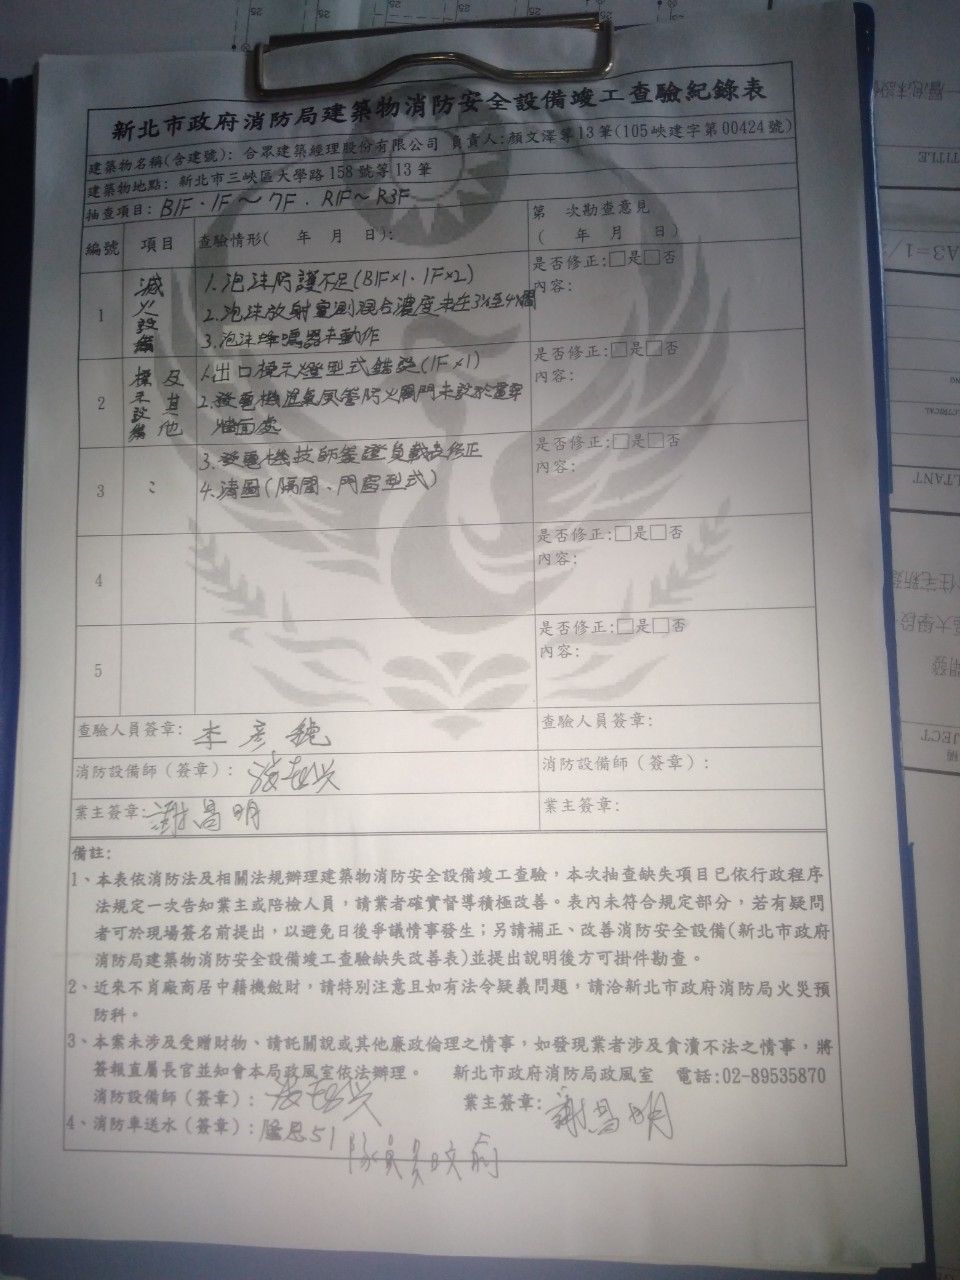 新北市政府消防局建築物消防安全設備竣工查驗紀錄表
建築物名稱(含建號): 合眾建築經理股份有限公司 負責人:顏文澤等13筆(105峽建字第00424號)
建築物地點: 新北市三峽區大學路158號等13筆
抽查項目: B1F、1F~7F、R1F~R3F
編號 項目 查驗情形( 年 月 日): 第 次勘查意見
( 年 月 日)
1 滅火設備 1.泡沫防護不足(B1F×1、1F×2)
2.泡沫放射量測混合濃度未在3%至4%間
3.泡沫蜂鳴器未動作
是否修正:□是□否
內容:
2 標示設備及其他 1.出口標示燈型式錯誤(1F×1)
2.發電機進氣風管防火閘門未設於貫穿
牆面處
是否修正:□是□否
內容:
3 : 3.發電機技師簽證負載表修正
4.清圖(隔間、門窗型式)
是否修正:□是□否
內容:
4 是否修正:□是□否
內容:
5 是否修正:□是□否
內容:
查驗人員簽章: 李彥 查驗人員簽章:
消防設備師(簽章): 消防設備師(簽章):
業主簽章: 謝昌明 業主簽章:
備註:
1、本表依消防法及相關法規辦理建築物消防安全設備竣工查驗,本次抽查缺失項目已依行政程序
法規定一次告知業主或陪檢人員,請業者確實督導積極改善。表內未符合規定部分,若有疑問
者可於現場簽名前提出,以避免日後爭議情事發生;另請補正、改善消防安全設備(新北市政府
消防局建築物消防安全設備竣工查驗缺失改善表)並提出說明後方可掛件勘查。
2、近來不肖廠商居中藉機斂財,請特別注意且如有法令疑義問題,請洽新北市政府消防局火災預
防科。
3、本案未涉及受贈財物、請託關說或其他廉政倫理之情事,如發現業者涉及貪瀆不法之情事,將
簽報直屬長官並知會本局政風室依法辦理。 新北市政府消防局政風室 電話:02-89535870
消防設備師(簽章): 業主簽章: 謝昌明
4、消防車送水(簽章): 隆恩51
隊員